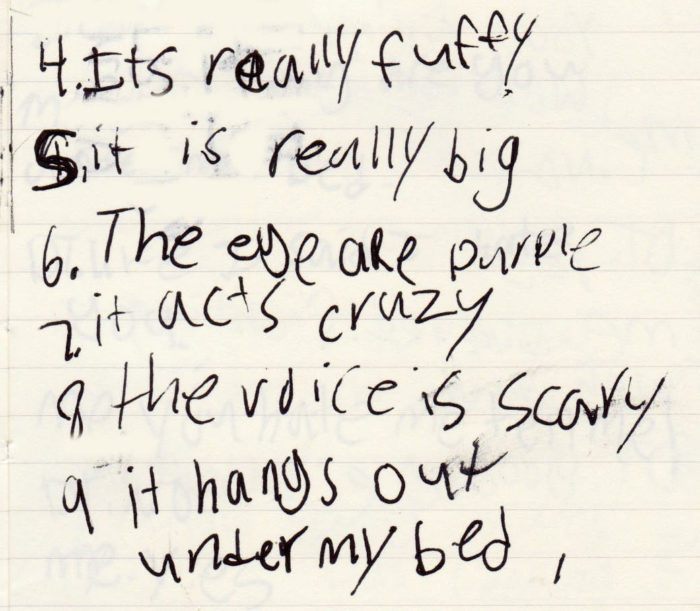 4. Its really fuffy.
5. it is really big
6. The eye are purple
7. it acts cruzy
8 the voice is scary
9 it hangs out
under my bed,